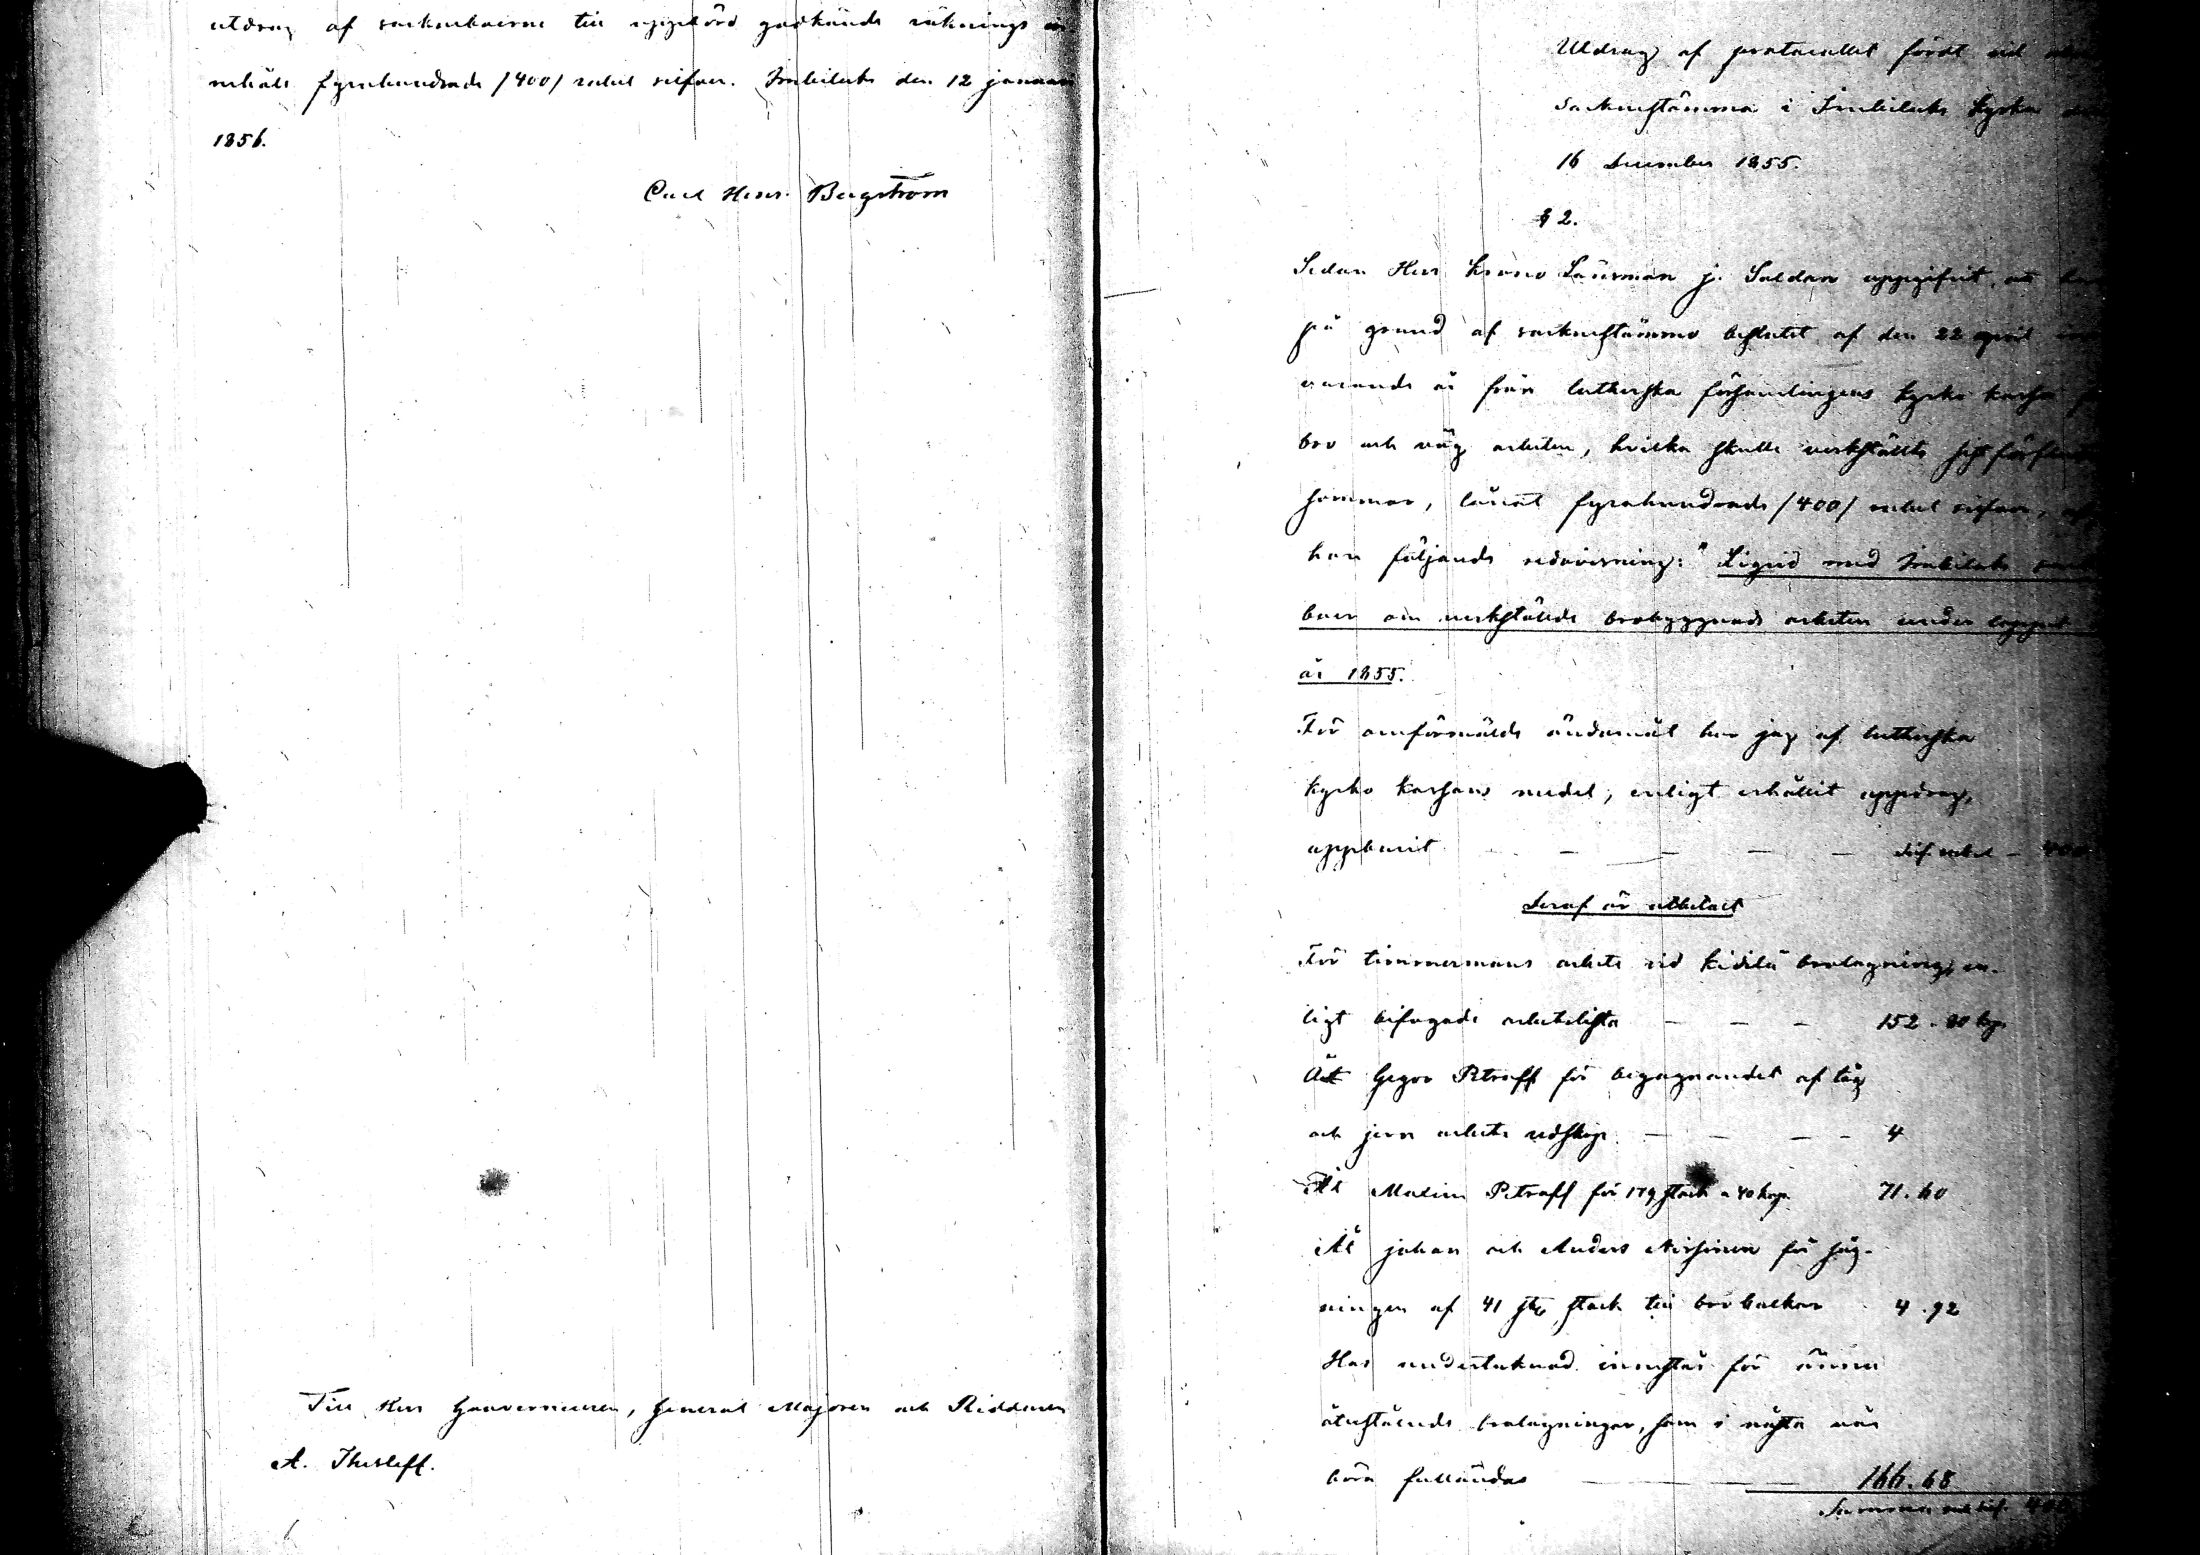 utdrag af sockneboerne till uppbörd godkände räknings
erhåll fyrahundrade /400/ rubel silfver. Imbilaks den 12 januari
1856.
Carl Henr. Bergström
Till Herr Gouverneuren, General Majoren och Riddaren
A. Thesleff.
Utdrag af protocollet fördt vid
Sockenstämma i Imbilaks kyrka den
16 December 1855.
§ 2.
Sedan Herr Krono Länsman j. Saldan uppgifvit, att han
på grund af sockenstämmo beslutet af den 22 april
varande år från lutherska församlingens kyrko kassa för
bro och väg arbeten, hvilka skulle verkställts sist förflutne
sommar, lånat fyrahundrade /400/ rubel silfver,
han följande redovisning: " Liqvid med Imbilaks
boer om verkstälde brobyggnads arbeten under loppet
år 1855.
För omförmälde ändamål har jag af lutherska
kyrko kassans medel, enligt erhållit uppdrag,
uppburit — — — — — Silf. rubel — 400
Deraf är utbetalt
För timmermans arbete vid Kidilä brolagning, en-
ligt bifogade arbetslista — — — 152 . 80 kop
Åt Gegor Petroff för begagnandet af tåg
och jern arbets redskap — — — — 4
Åt Maxim Petroff för 179 stock a 40 kop. 71 . 60
Åt Johan och Anders Hirsinen för såg-
ningen af 41 st. stock till bro balkar 4 . 92
Hos undertecknad innestår för ännu
återstående brolagningar, som i nästa vår
böra fulländas — — 166 . 68
Summa rub. silf. 400